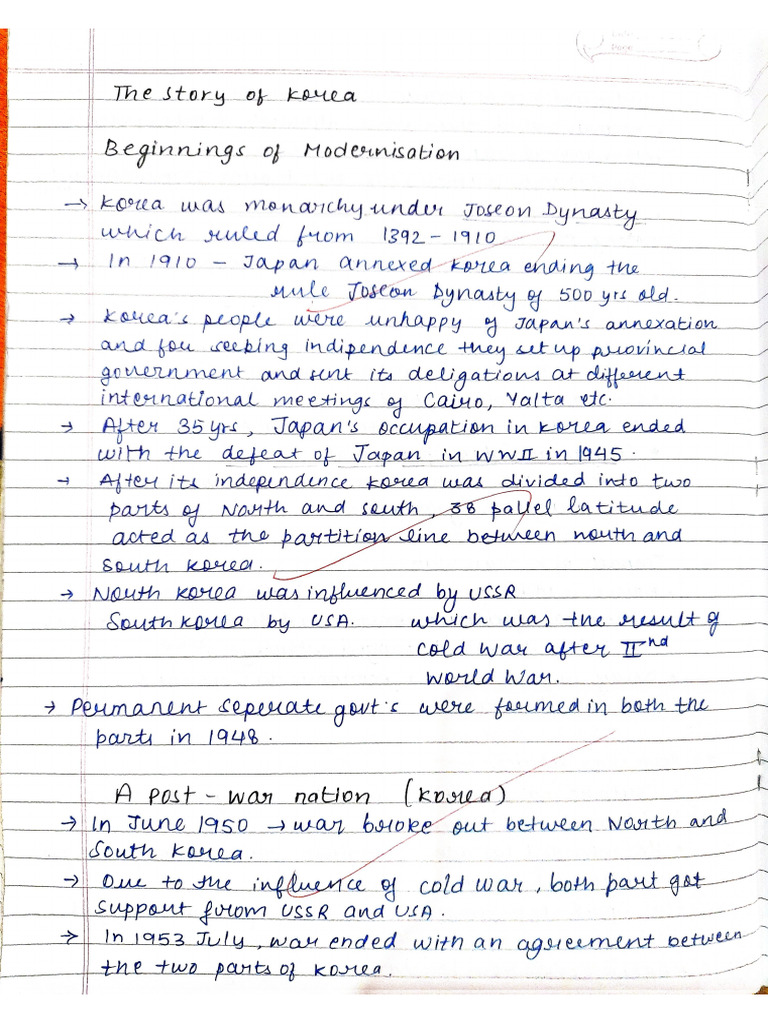 The Story of Korea
Beginnings of Modernisation
→ Korea was monarchy under Joseon Dynasty
which ruled from 1392 - 1910
→ In 1910 - Japan annexed Korea ending the
rule Joseon Dynasty of 500 yrs old.
→ Korea's people were unhappy of Japan's annexation
and for seeking indipendence they set up provincial
government and sent its deligations at different
international meetings of Cairo, Yalta etc.
→ After 35 yrs, Japan's occupation in Korea ended
with the defeat of Japan in WWII in 1945.
→ After its independence Korea was divided into two
parts of North and south, 38 pallel latitude
acted as the partition line between north and
South Korea.
→ North Korea was influenced by USSR
South Korea by USA. which was the result of
cold war after IInd
World War.
→ Permanent seperate govt's were formed in both the
parts in 1948.
A post - war nation (Korea)
→ In June 1950 → war broke out between North and
South Korea.
→ Due to the influence of cold war, both part got
support from USSR and USA.
→ In 1953 July, war ended with an agreement between
the two parts of Korea.